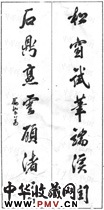 松窗試筆端溪
石鼎烹雲顧渚
中华收藏网
WWW.PMV.CN